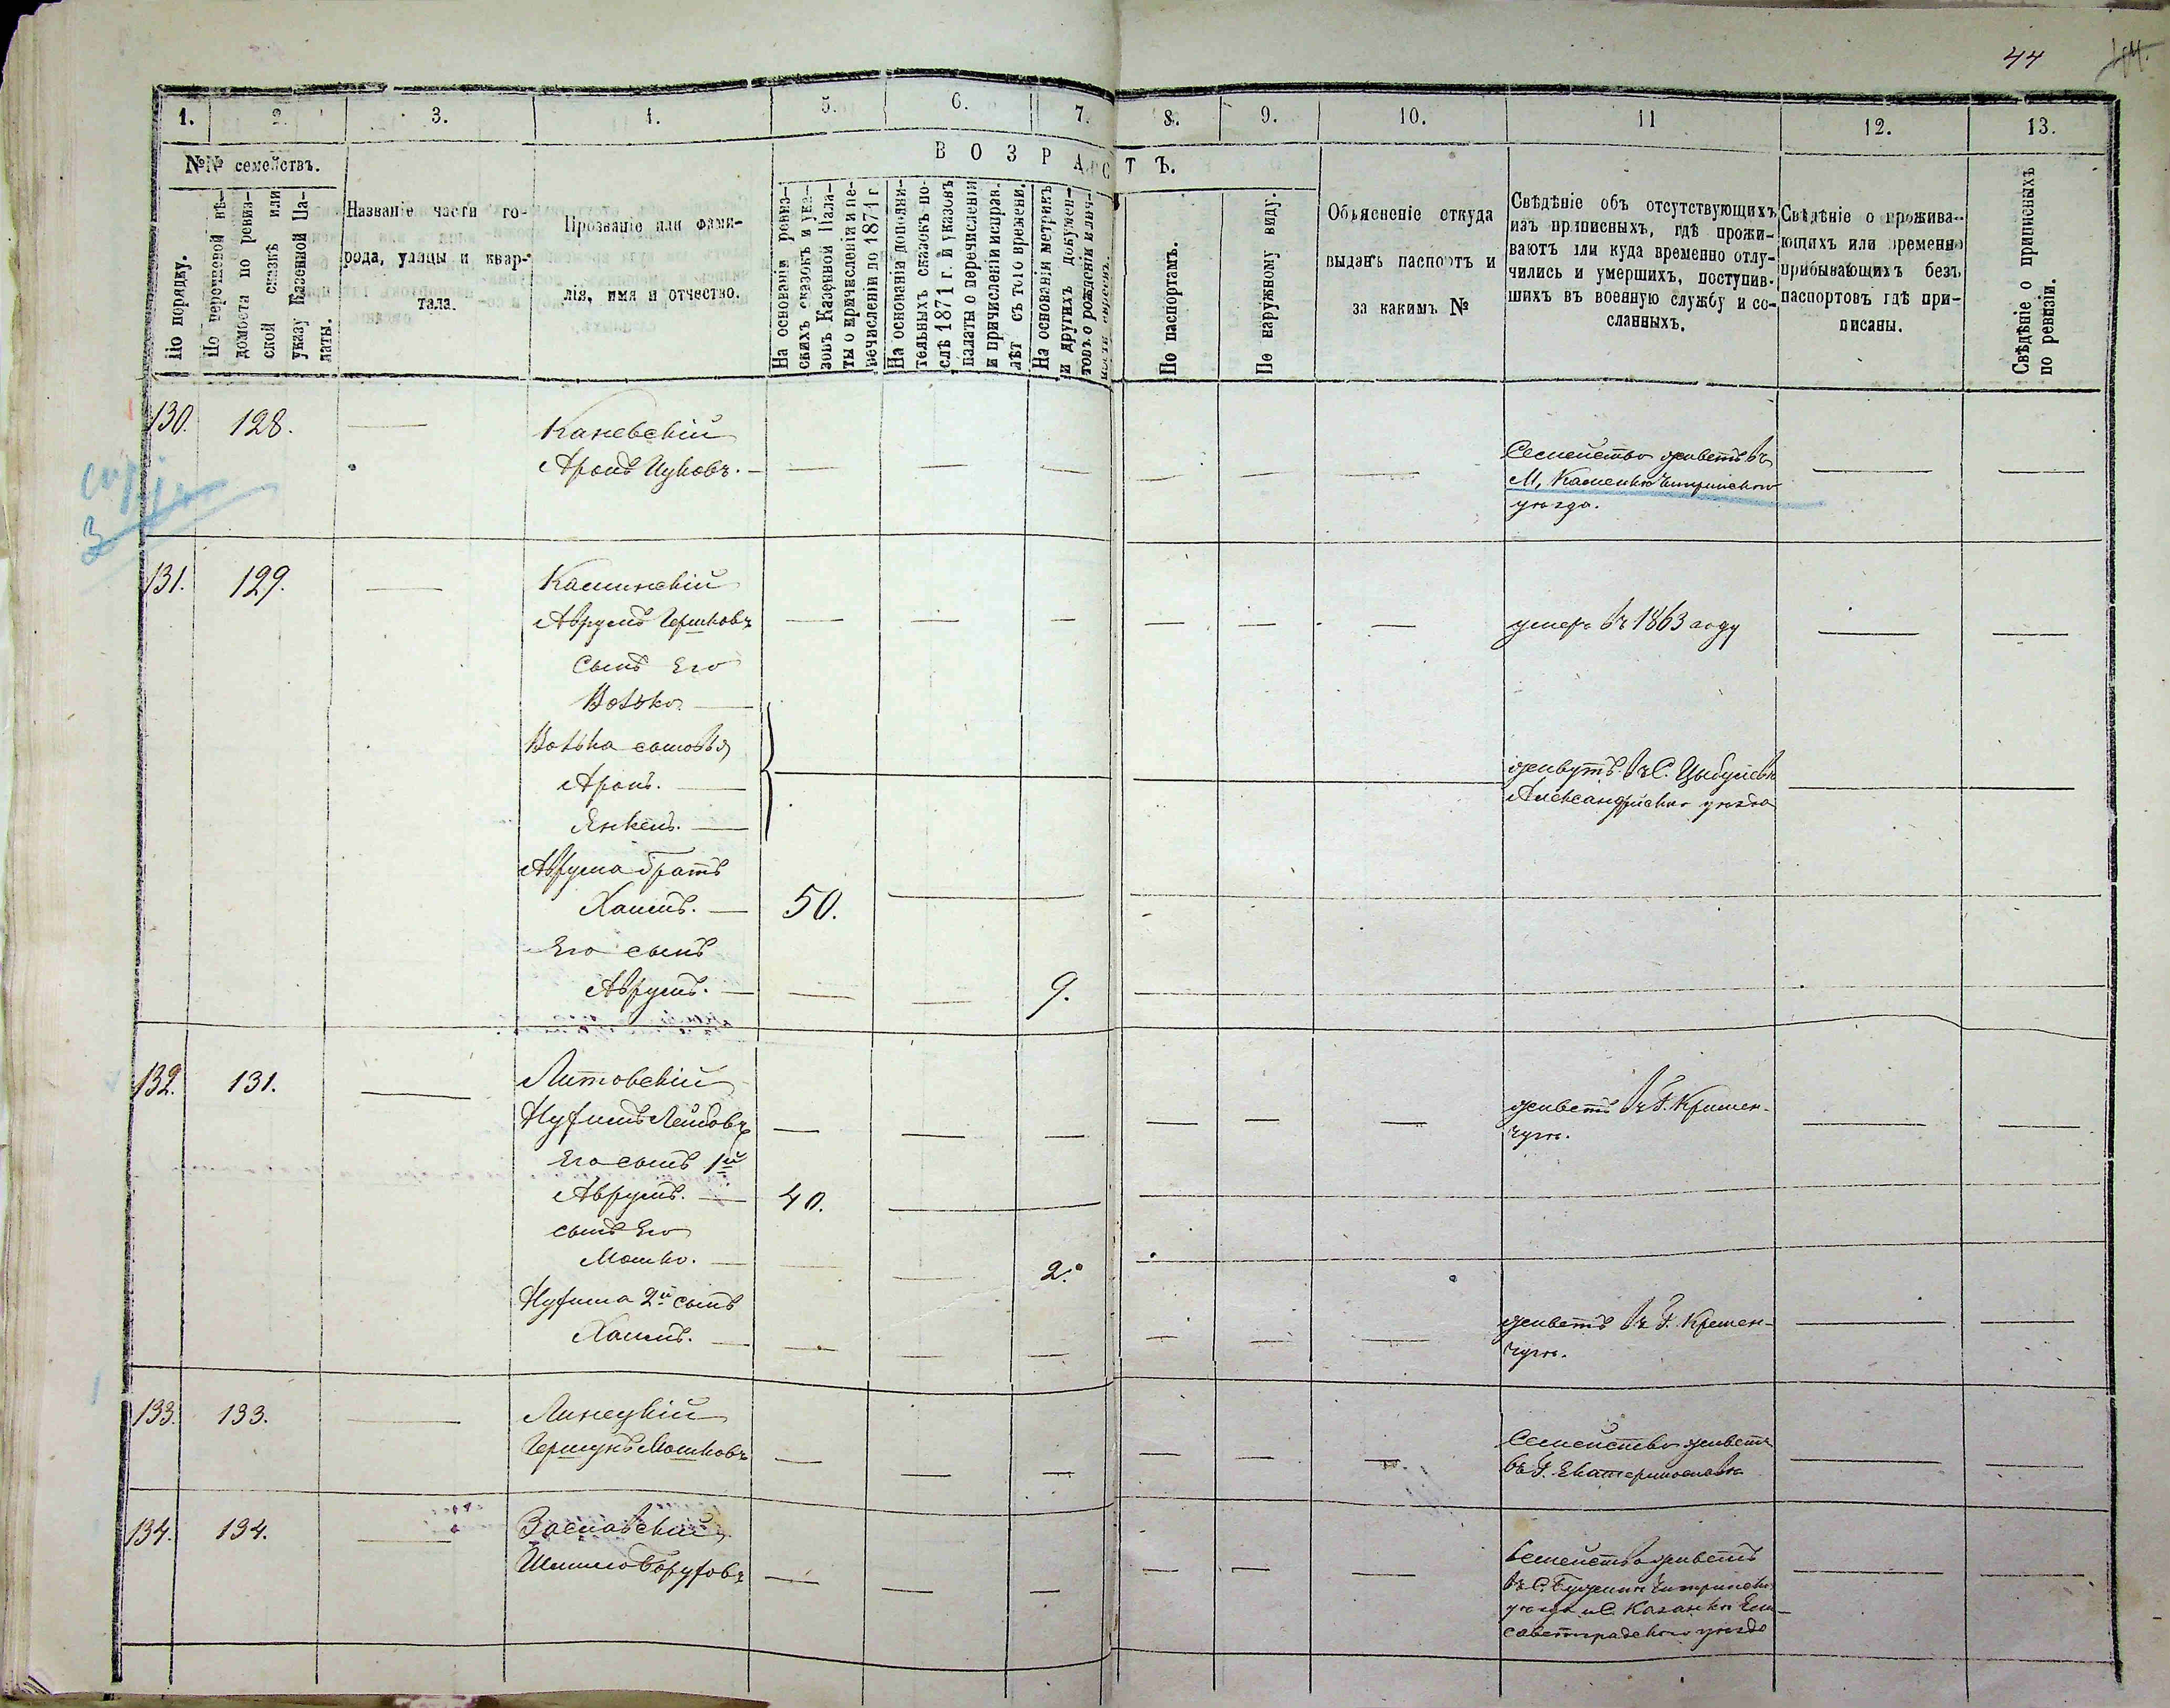 44
1. 2. 3. 4. 5. 6. 7. 8. 9. 10. 11 12. 13.
№№ семействъ.
ВОЗРАСТЪ.
По порядку.
По перочневой вѣ-
домости по ревиз-
ской сказкѣ или
указу Казенной Па-
латы.
Названіе части го-
рода, улицы и квар-
тала.
Прозваніе или фами-
лія, имя и отчество.
На основаніи ревиз-
скихъ сказокъ и ука-
зовъ Казенной Пала-
ты о причисленіи и пе-
речисленіи до 1871 г
На основаніи дополни-
тельныхъ сказокъ по-
слѣ 1871 г. и указовъ
палаты о перечисленіи
и причисленіи исправ.
лѣт съ того времени.
На основаніи метрикъ
и другихъ докумен-
товъ о рожденіи и лич-
ности евреевъ.
По паспортамъ.
По наружному виду.
Объясненіе откуда
выданъ паспортъ и
за какимъ №
Свѣдѣніе объ отсутствующихъ
изъ приписныхъ, гдѣ прожи-
ваютъ или куда временно отлу-
чились и умершихъ, поступив-
шихъ въ военную службу и со-
сланныхъ.
Свѣдѣніе о прожива-
ющихъ или временно
прибывающихъ безъ
паспортовъ гдѣ при-
писаны.
Свѣдѣніе о приписныхъ
по ревизіи.
130. 128. — Каневскій
Аронъ Ицковъ. — — — — — — — Семейство живетъ въ — —
М, Каменкѣ Чигиринскаго
уѣзда.
131. 129. — Каминскій
Аврумъ Гершковъ — — — — — — умеръ въ 1863 году — —
Сынъ Его
Волько —
Волька сыновья
Аронъ. — живутъ въ С. Цыбулевкѣ
Янкель. — Александрійскаго уѣзда
Аврума братъ
Хаимъ. — 50.
Его сынъ
Аврумъ. — — — 9.
132. 131. — Литовскій
Нухимъ Лейбовъ — — — — — — живетъ въ Г. Кремен-
чугѣ.
Его сынъ 1й
Аврумъ. — 40.
сынъ Его
Мошко. — — — 2.
Нухима 2й сынъ
Хаимъ. — — — — — — — живетъ въ Г. Кремен-
чугѣ.
133. 133. — Линецкій
Гершунъ Мошковъ — — — — — — Семейство живетъ
въ Г. Екатеринославѣ
134. 134. — Заславскій
Шмило Боруховъ — — — — — — Семейство живетъ
въ С. Бужинѣ Чигиринск.
уѣзда и С. Казанкѣ Ели-
саветградскаго уѣзда